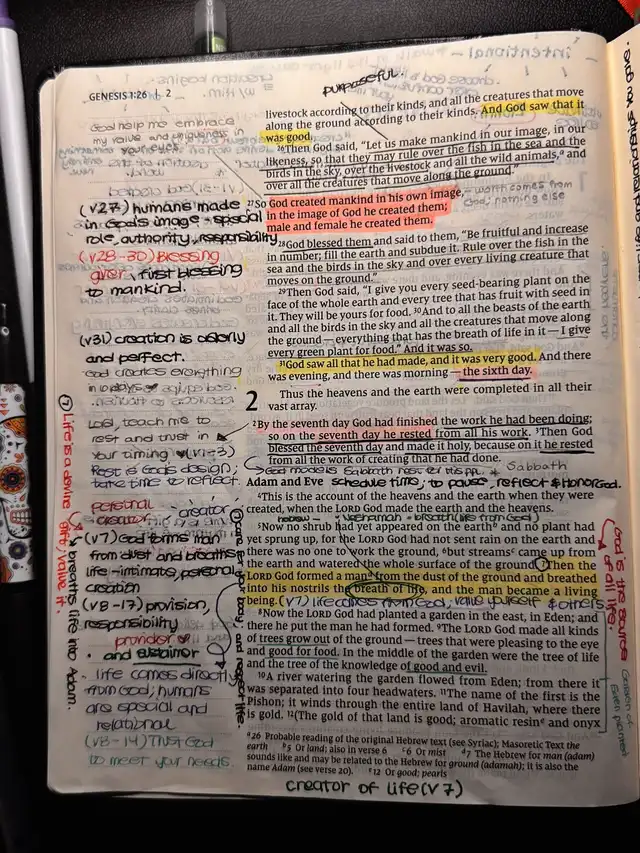 purposeful.
GENESIS 1:26 | 2
livestock according to their kinds, and all the creatures that move
along the ground according to their kinds. And God saw that it
was good.
26Then God said, "Let us make mankind in our image, in our
likeness, so that they may rule over the fish in the sea and the
birds in the sky, over the livestock and all the wild animals,a and
over all the creatures that move along the ground."
27So God created mankind in his own image,
in the image of God he created them;
male and female he created them.
worth comes from
God; nothing else
28God blessed them and said to them, "Be fruitful and increase
in number; fill the earth and subdue it. Rule over the fish in the
sea and the birds in the sky and over every living creature that
moves on the ground."
29Then God said, "I give you every seed-bearing plant on the
face of the whole earth and every tree that has fruit with seed in
it. They will be yours for food. 30And to all the beasts of the earth
and all the birds in the sky and all the creatures that move along
the ground — everything that has the breath of life in it — I give
every green plant for food." And it was so.
31God saw all that he had made, and it was very good. And there
was evening, and there was morning — the sixth day.
2 Thus the heavens and the earth were completed in all their
vast array.
2By the seventh day God had finished the work he had been doing;
so on the seventh day he rested from all his work. 3Then God
blessed the seventh day and made it holy, because on it he rested
from all the work of creating that he had done.
Sabbath
Adam and Eve schedule time; to pause, reflect & Honor God.
4This is the account of the heavens and the earth when they were
created, when the LORD God made the earth and the heavens.
hebrew - Neshamah - breath (life from God)
5Now no shrub had yet appeared on the earthb and no plant had
yet sprung up, for the LORD God had not sent rain on the earth and
there was no one to work the ground, 6but streamsc came up from
the earth and watered the whole surface of the ground. 7Then the
LORD God formed a mand from the dust of the ground and breathed
into his nostrils the breath of life, and the man became a living
being. (v7) life comes from God, value yourself & others
8Now the LORD God had planted a garden in the east, in Eden; and
there he put the man he had formed. 9The LORD God made all kinds
of trees grow out of the ground — trees that were pleasing to the eye
and good for food. In the middle of the garden were the tree of life
and the tree of the knowledge of good and evil.
10A river watering the garden flowed from Eden; from there it
was separated into four headwaters. 11The name of the first is the
Pishon; it winds through the entire land of Havilah, where there
is gold. 12(The gold of that land is good; aromatic resine and onyx
a26 Probable reading of the original Hebrew text (see Syriac); Masoretic Text the
earth b5 Or land; also in verse 6 c6 Or mist d7 The Hebrew for man (adam)
sounds like and may be related to the Hebrew for ground (adamah); it is also the
name Adam (see verse 20). e12 Or good; pearls
creator of life (v7)
God help me embrace
my value and uniqueness in
your eyes
(v27) humans made
in God's image - special
role, authority, responsibility
(v28-30) Blessing
given, first blessing
to mankind.
(v31) creation is orderly
and perfect.
God creates everything
Lord, teach me to
rest and trust in
your timing (v1-3)
Rest is God's design;
take time to reflect.
personal
creator
(v7) God forms man
from dust and breaths
life - intimate, personal
creation
(v8-17) provision,
responsibility
provider
and sustainor
life comes directly
from God; humans
are special and
relational
(v8-14) Trust God
to meet your needs.
Life is a divine
gift, value it.
breaths life into Adam.
care for your body, and respect life.
God is the source
of all life.